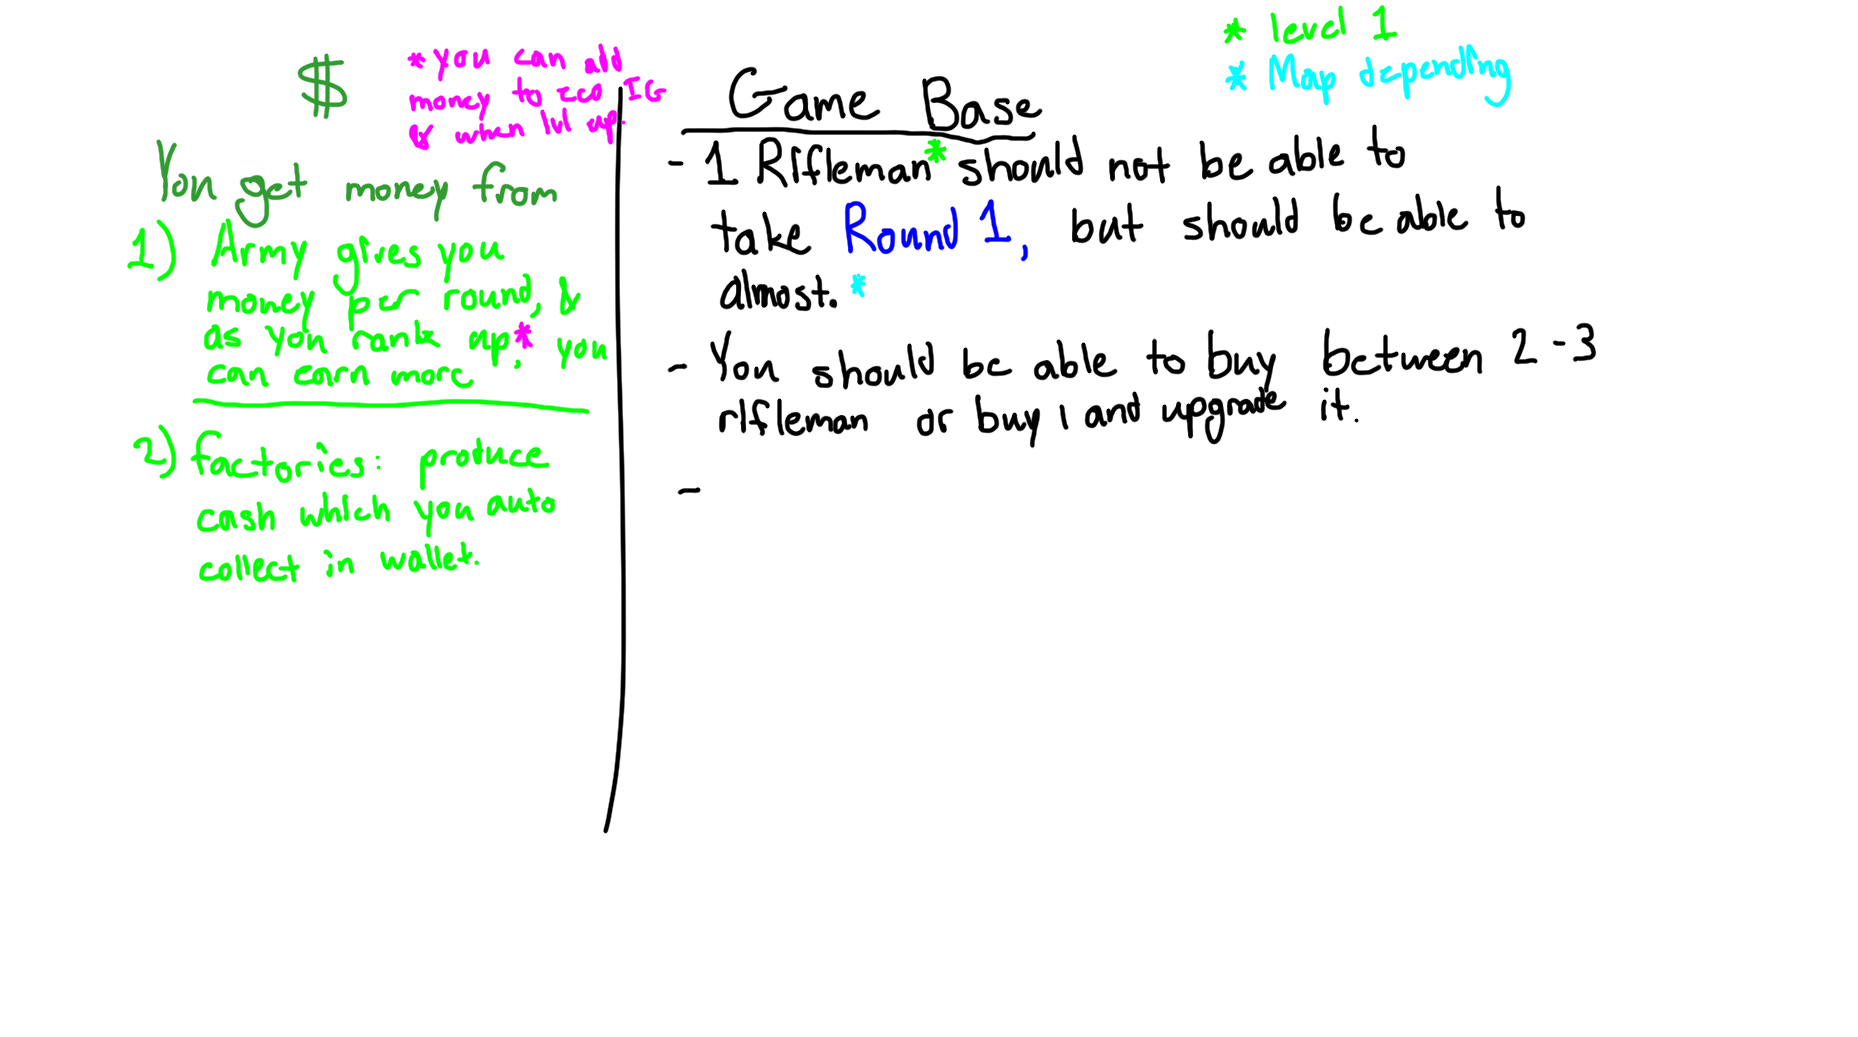 $
* you can add
money to eco IG
& when lvl up.
You get money from
1) Army gives you
money per round, &
as you rank up*, you
can earn more
2) factories: produce
cash which you auto
collect in wallet.
* level 1
* Map depending
Game Base
- 1 Rifleman* should not be able to
take Round 1, but should be able to
almost. *
- You should be able to buy between 2-3
rifleman or buy 1 and upgrade it.
-